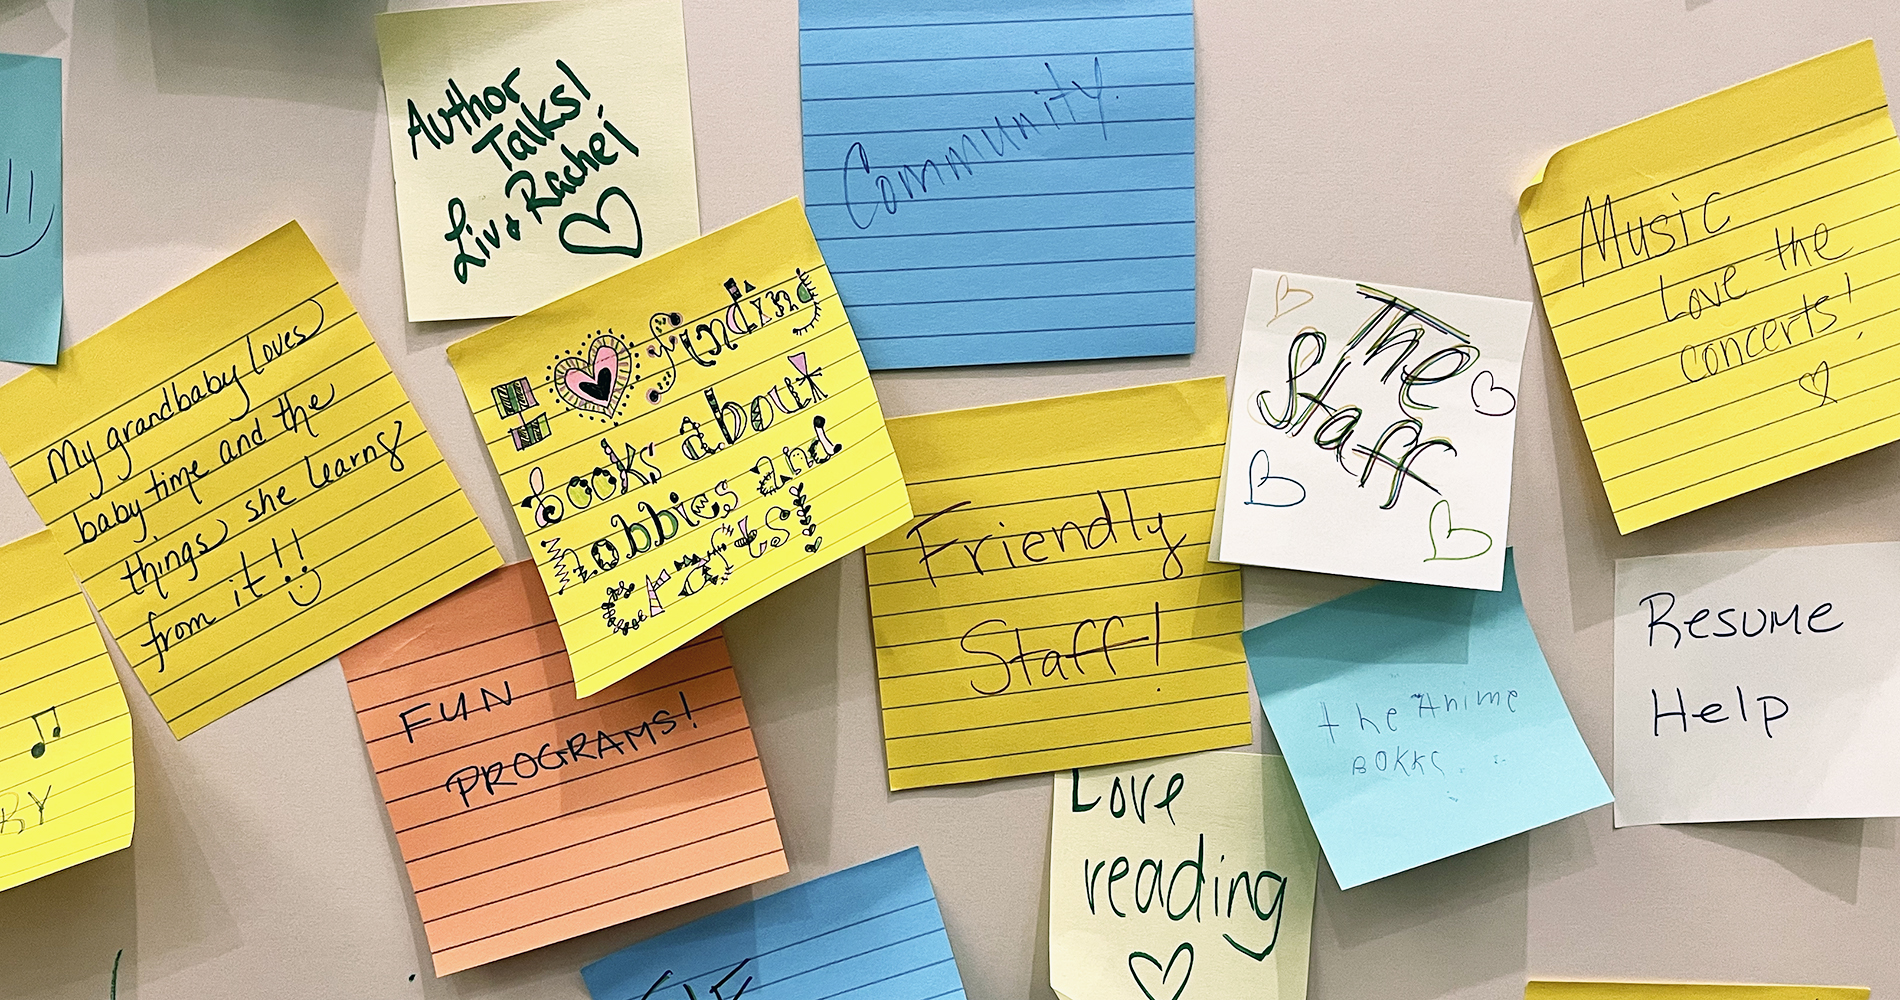 Author
Talks!
Liv & Rachel
Community
Music
Love the
concerts!
My grandbaby loves
baby time and the
things she learns
from it!!
I finding
books about
hobbies and
crafts!
The
Staff
Friendly
Staff!
FUN
PROGRAMS!
the Anime
BOKKS...
Resume
Help
Love
reading